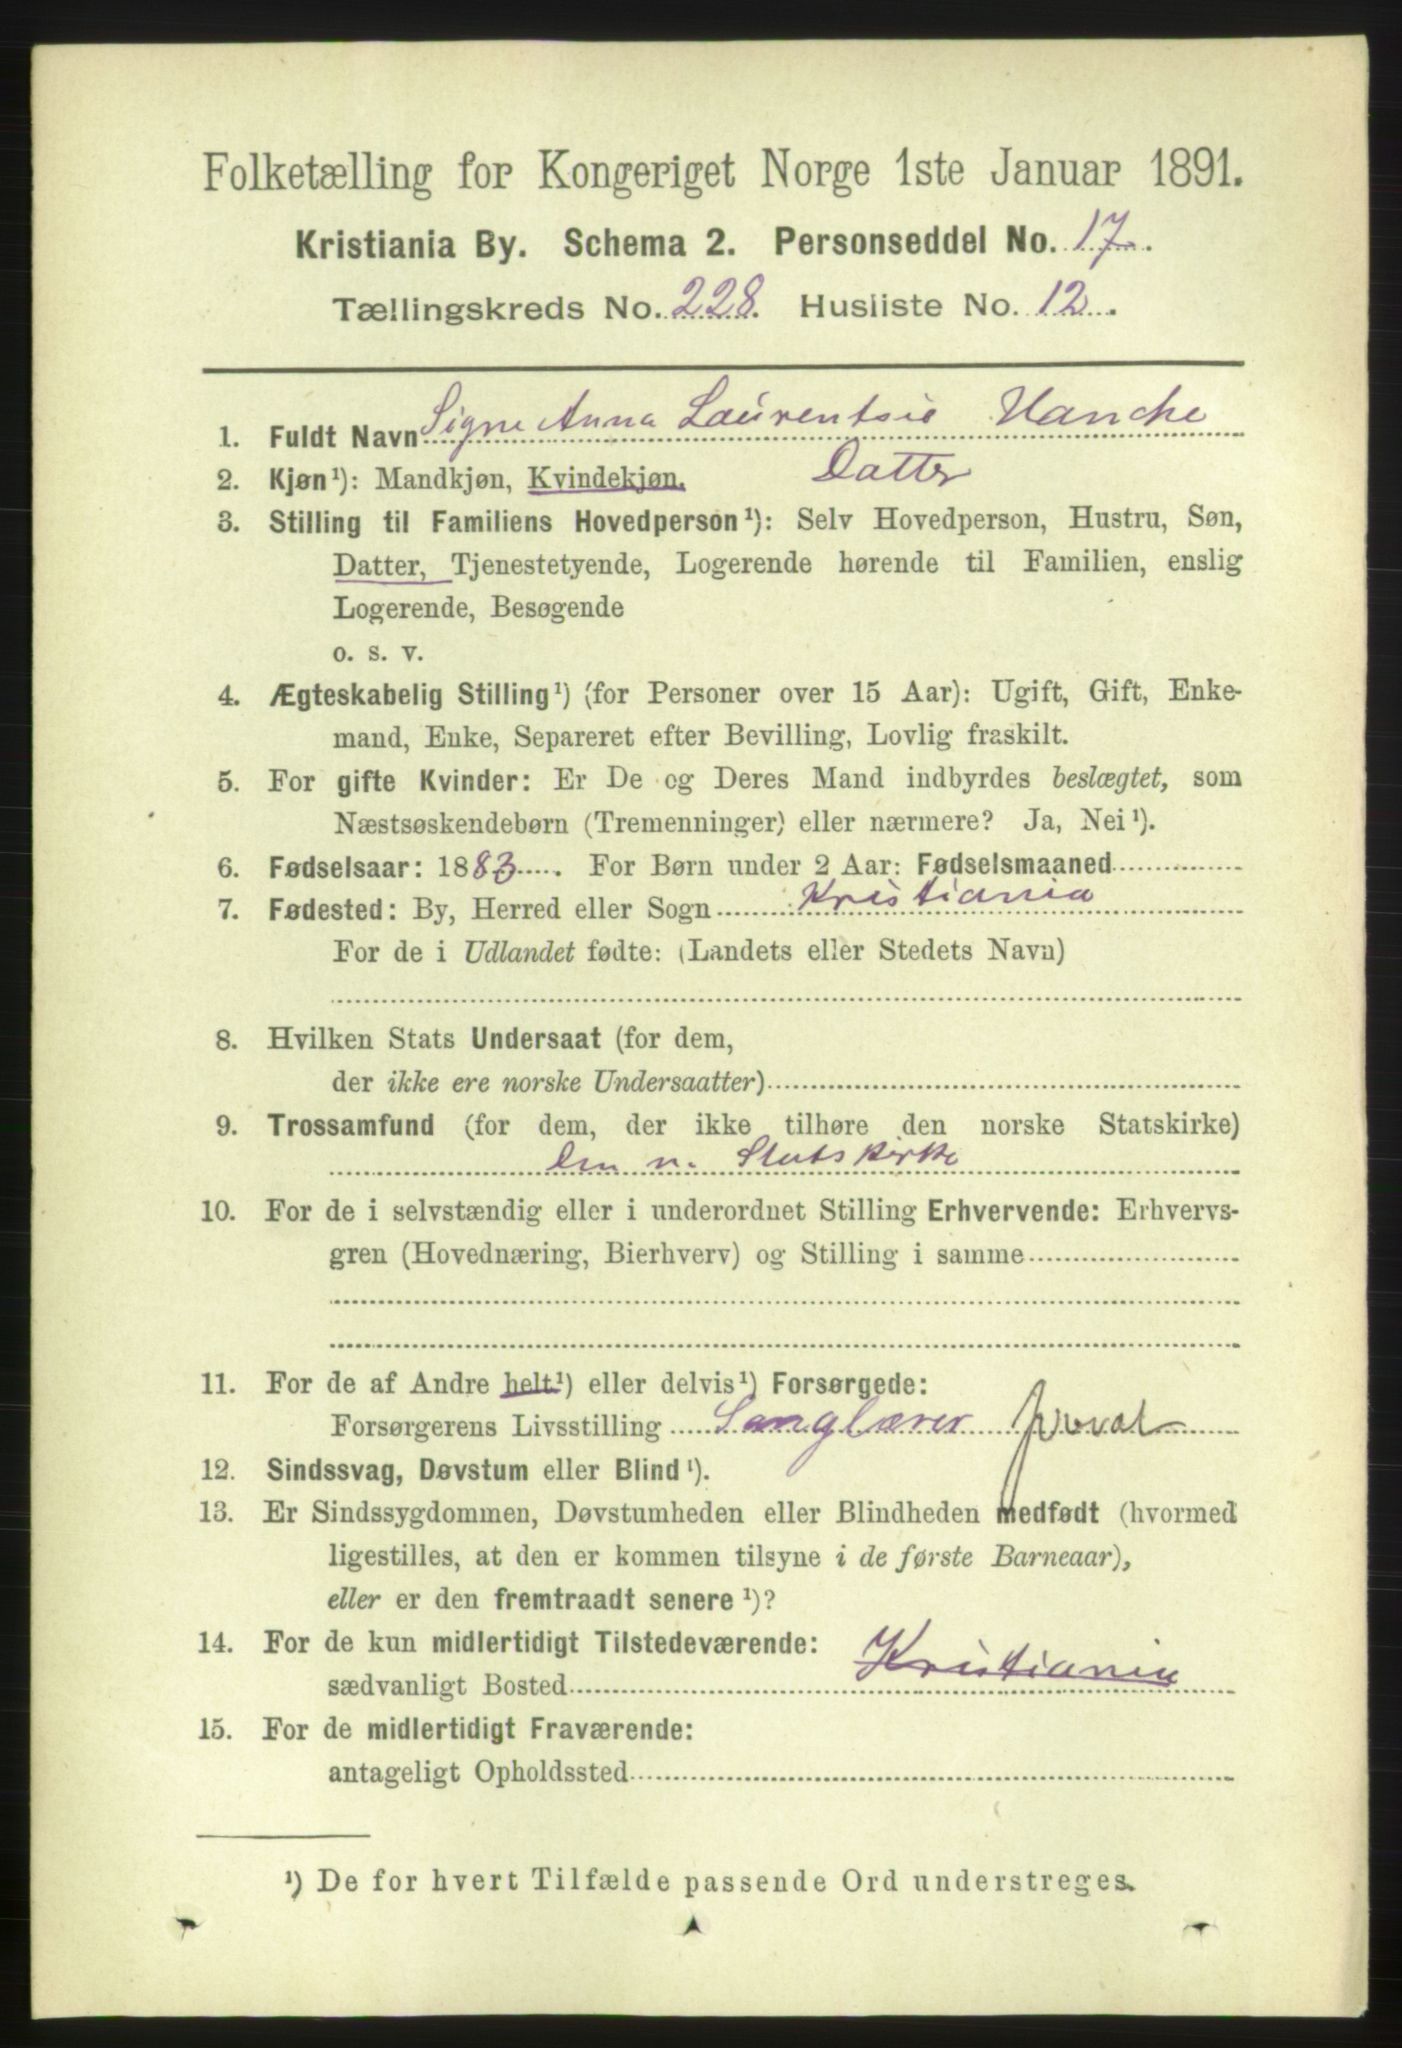 Folketælling for Kongeriget Norge 1ste Januar 1891.
Kristiania By. Schema 2. Personseddel No. 17.
Tællingskreds No. 228. Husliste No. 12.
1. Fuldt Navn Signe Anna Laurentsie Hanche
2. Kjøn¹): Mandkjøn, Kvindekjøn. Datter
3. Stilling til Familiens Hovedperson¹): Selv Hovedperson, Hustru, Søn,
Datter, Tjenestetyende, Logerende hørende til Familien, enslig
Logerende, Besøgende
o. s. v.
4. Ægteskabelig Stilling¹) (for Personer over 15 Aar): Ugift, Gift, Enke-
mand, Enke, Separeret efter Bevilling, Lovlig fraskilt.
5. For gifte Kvinder: Er De og Deres Mand indbyrdes beslægtet, som
Næstsøskendebørn (Tremenninger) eller nærmere? Ja, Nei¹).
6. Fødselsaar: 1883. For Børn under 2 Aar: Fødselsmaaned
7. Fødested: By, Herred eller Sogn Kristiania
For de i Udlandet fødte: (Landets eller Stedets Navn)
8. Hvilken Stats Undersaat (for dem,
der ikke ere norske Undersaatter)
9. Trossamfund (for dem, der ikke tilhøre den norske Statskirke)
Den n. Statskirke
10. For de i selvstændig eller i underordnet Stilling Erhvervende: Erhvervs-
gren (Hovednæring, Bierhverv) og Stilling i samme
11. For de af Andre helt¹) eller delvis¹) Forsørgede:
Forsørgerens Livsstilling Sanglærer
12. Sindssvag, Døvstum eller Blind¹).
13. Er Sindssygdommen, Døvstumheden eller Blindheden medfødt (hvormed
ligestilles, at den er kommen tilsyne i de første Barneaar),
eller er den fremtraadt senere¹)?
14. For de kun midlertidigt Tilstedeværende:
sædvanligt Bosted Kristiania
15. For de midlertidigt Fraværende:
antageligt Opholdssted
¹) De for hvert Tilfælde passende Ord understreges.